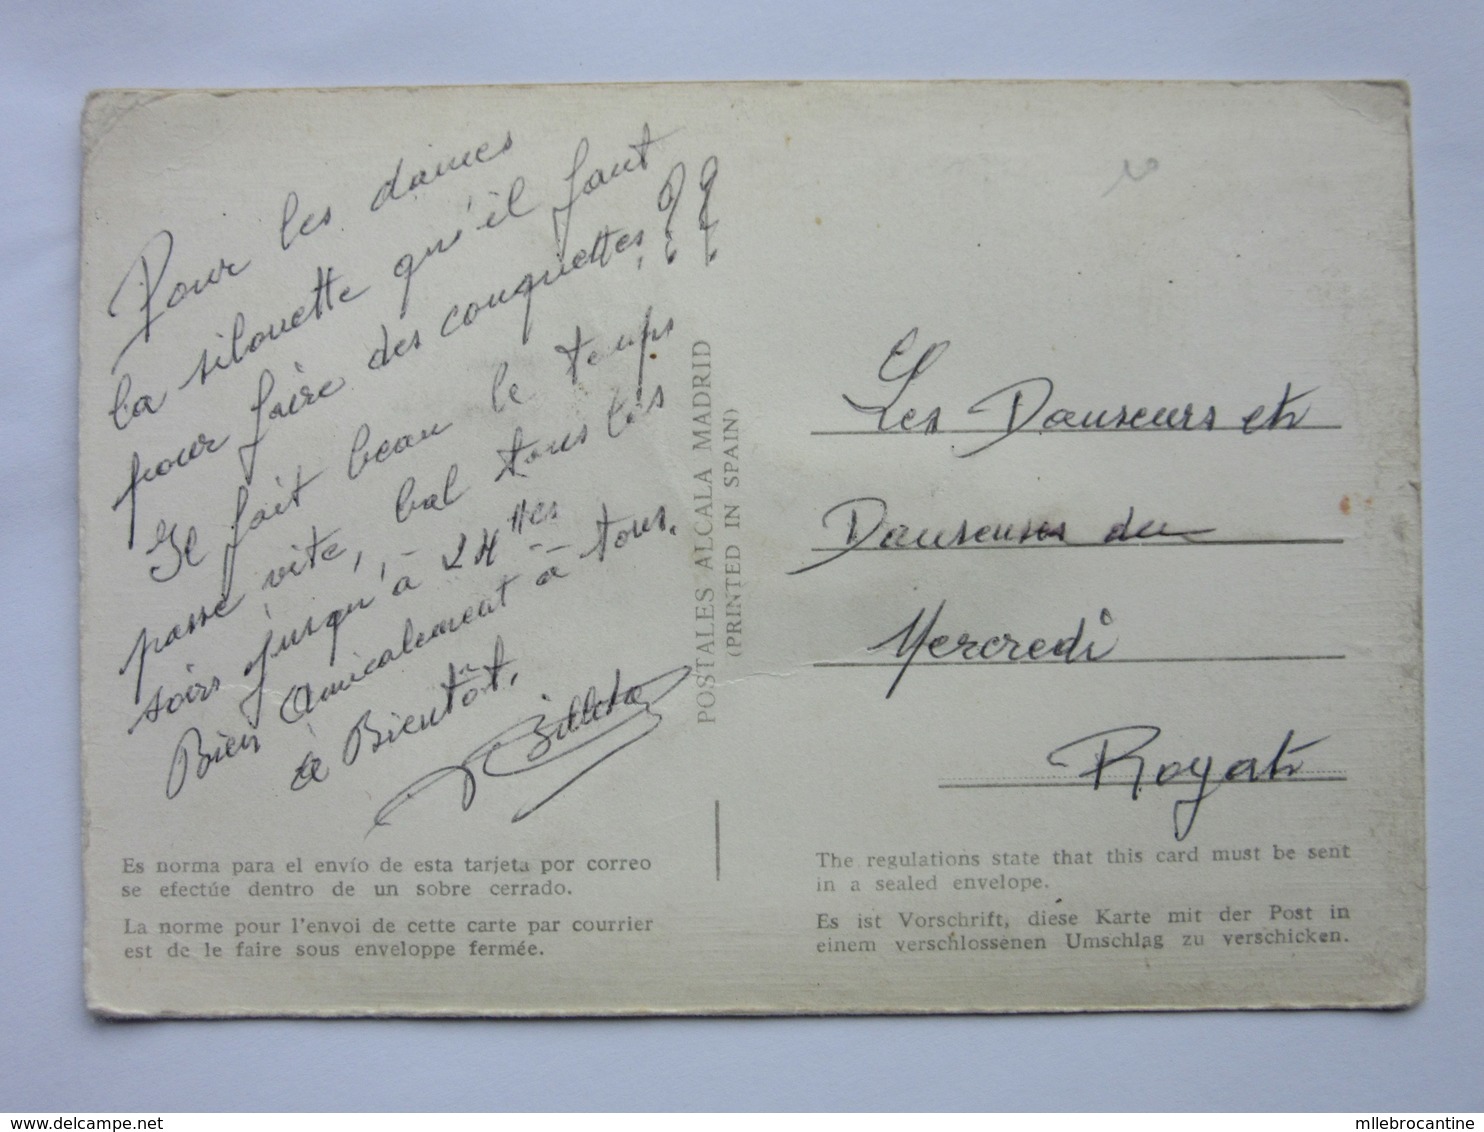 Pour les dames
la silouette qu'il faut
pour faire des conquettes !??
Il fait beau le temps
passe vite, bal tous les
soirs jusqu'à 24 Hes
Bien Amicalement à tous.
à Bientôt.
POSTALES ALCALA MADRID
(PRINTED IN SPAIN)
Les Danseurs et
Danseuses du
Mercredi
Royat
Es norma para el envío de esta tarjeta por correo
se efectúe dentro de un sobre cerrado.
La norme pour l'envoi de cette carte par courrier
est de le faire sous enveloppe fermée.
The regulations state that this card must be sent
in a sealed envelope.
Es ist Vorschrift, diese Karte mit der Post in
einem verschlossenen Umschlag zu verschicken.
www.delcampe.net
mllebrocantine